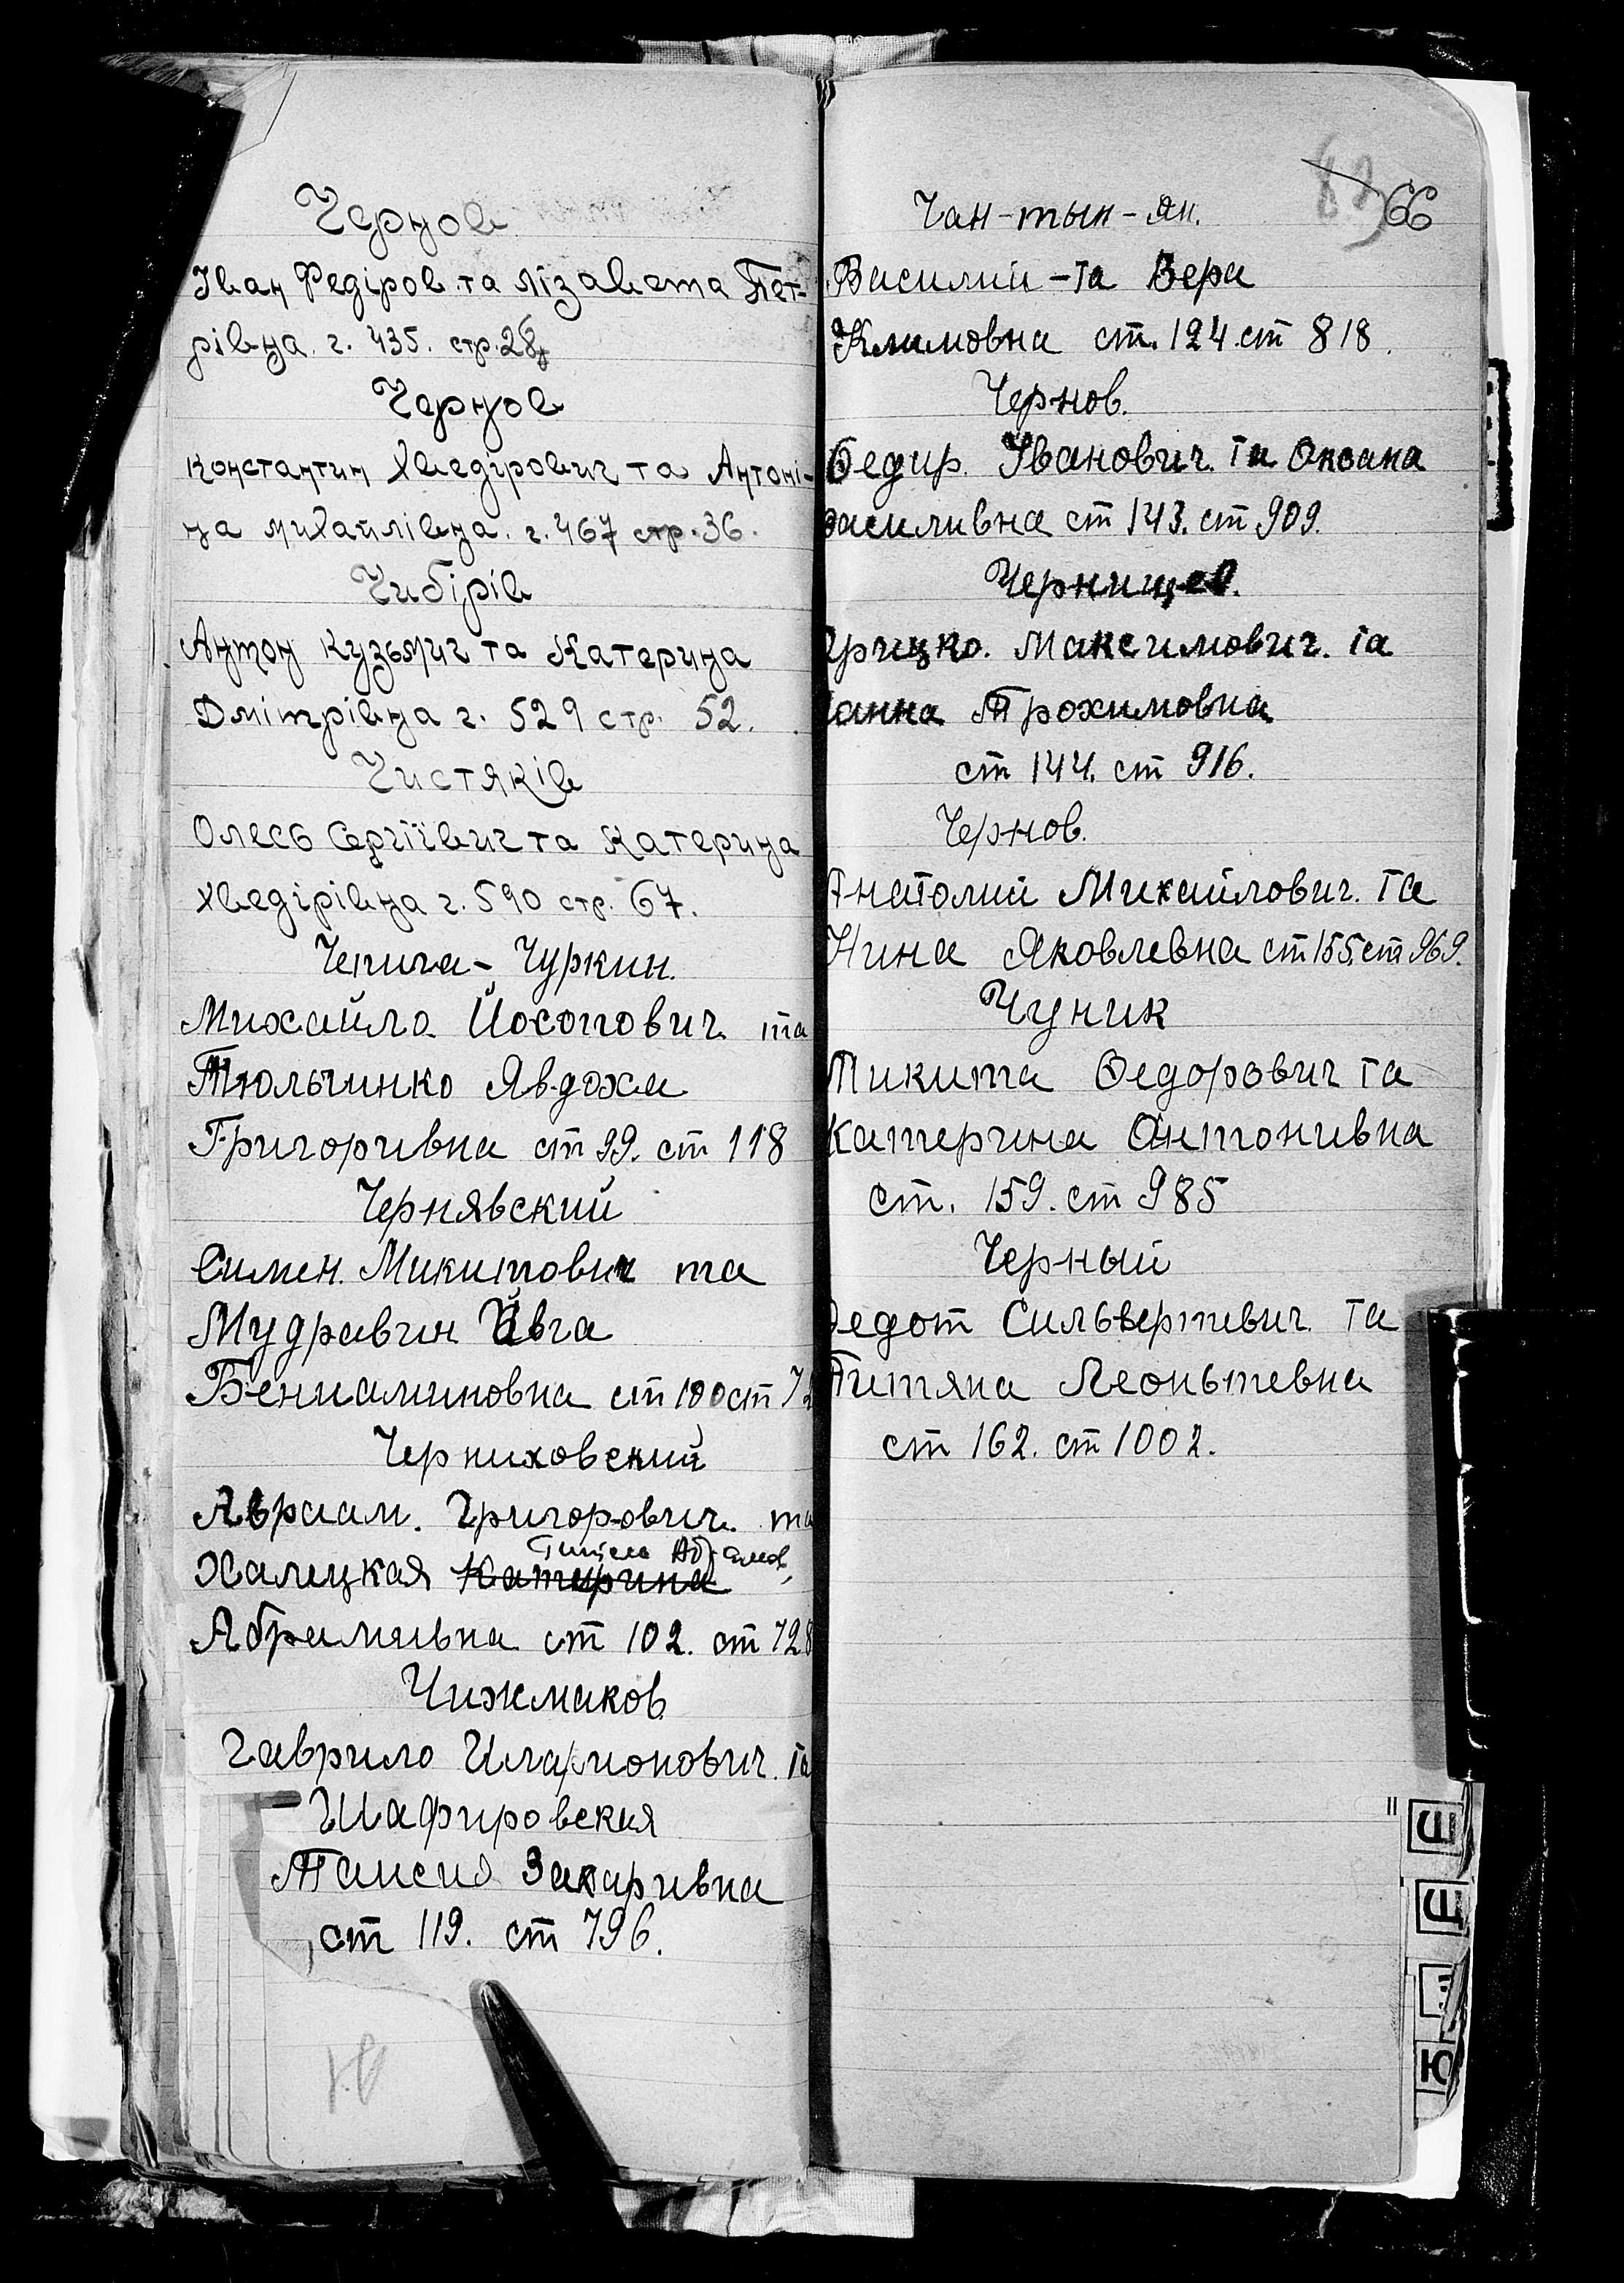 Чернов
Іван Федіров та Лізавета Пет-
рівна. г. 435. стр. 28
Чернов
Константин Хведірович та Антоні-
на Михайлівна. г. 467 стр. 36.
Чибірів
Антон Кузьмич та Катерина
Дмітрівна г. 529 стр. 52.
Чистяків
Олесь Сергіївич та Катерина
Хведірівна г. 590 стр. 67.
Чепига - Чуркин.
Михайло Йосопович та
Тюльчинко Явдоха
Григоривна ст 99. ст 118
Чернявский
Симен. Микитович та
Мудравин Ивга
Бениаминовна ст 100 ст 72
Черниховский
Авраам. Григорович. та
Абрамов
Халецкая Катирина
Абрамивна ст 102. ст 728
Чижмаков
Гаврило Иларионович. та
- Шафировская
Таисия Захаривна
ст 119. ст 796.
66
Чан-тын-ян.
Василий - та Вера
Климовна ст. 124. ст 818.
Чернов.
Федир. Іванович. та Оксана
Василивна ст 143. ст 909.
Чернищев.
Грицко. Максимович. та
Ганна Трохимовна
ст 144. ст 916.
Чернов.
Анатолий Михайлович. та
Нина Яковлевна ст 155. ст 969.
Чуник
Микита Федорович та
Катерина Антонивна
ст. 159. ст 985
Черный
Федот Сильвертевич та
Титяна Леоньтевна
ст 162. ст 1002.
Ю